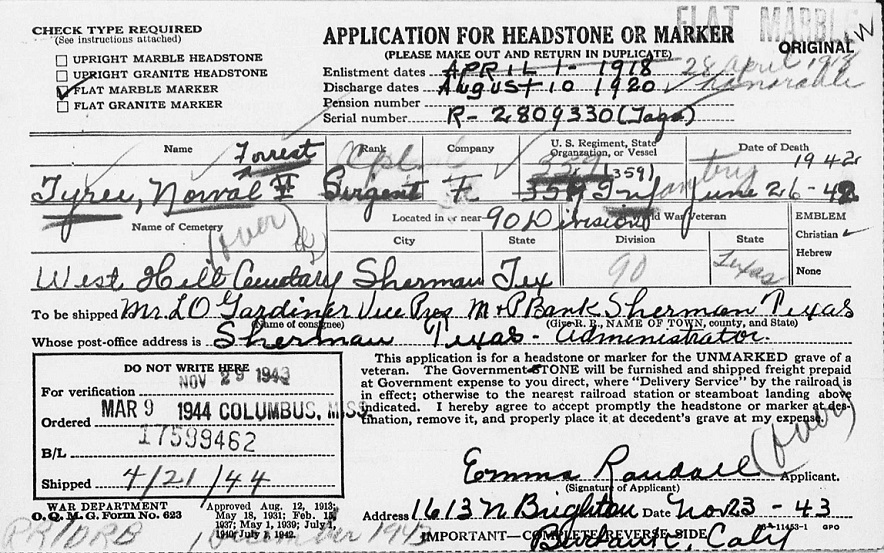 FLAT MARBLE
CHECK TYPE REQUIRED
(See instructions attached)
UPRIGHT MARBLE HEADSTONE
UPRIGHT GRANITE HEADSTONE
FLAT MARBLE MARKER
FLAT GRANITE MARKER
APPLICATION FOR HEADSTONE OR MARKER
(PLEASE MAKE OUT AND RETURN IN DUPLICATE)
ORIGINAL
W
Enlistment dates APRIL 1 - 1918 28 April 1918
Discharge dates AUGUST 10 1920 honorable
Pension number
Serial number R-2809330 (Tags)
Name Rank Company U.S. Regiment, State Organization, or Vessel Date of Death
Forrest Cpl 359 (359) 1942
Tyree, Norval F Sirgent F 359 Infantry June 26-42
90 Division
Name of Cemetery Located in or near World War Veteran EMBLEM
City State Division State
Christian
Hebrew
None
(over)
90 Texas
West Hill Cemetary Sherman Tex
To be shipped Mr. L O Gardiner Vice Pres M + P Bank Sherman Texas
(Name of consignee) (Give R. R., NAME OF TOWN, county, and State)
Whose post-office address is Sherman Texas - Administrator.
DO NOT WRITE HERE
For verification NOV 29 1943
Ordered MAR 9 1944 COLUMBUS, MISS.
B/L 17599462
Shipped 4/21/44
This application is for a headstone or marker for the UNMARKED grave of a
veteran. The Government STONE will be furnished and shipped freight prepaid
at Government expense to you direct, where "Delivery Service" by the railroad is
in effect; otherwise to the nearest railroad station or steamboat landing above
indicated. I hereby agree to accept promptly the headstone or marker at des-
tination, remove it, and properly place it at decedent's grave at my expense.
(over)
Emma Randall Applicant.
(Signature of Applicant)
WAR DEPARTMENT
O. Q. M. G. Form No. 623
Approved Aug. 12, 1913;
May 18, 1931; Feb. 15,
1937; May 1, 1939; July 1,
1940; July 1, 1942.
Address 1613 N Brighton Date Nov 23 - 43
IMPORTANT—COMPLETE REVERSE SIDE
16-11453-1 GPO
Burbank, Caly